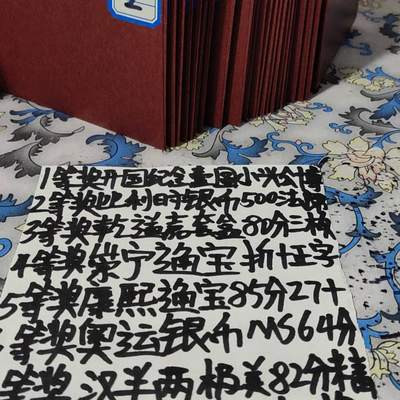 1等奖开国纪念壹圆小头公博
2等奖比利时银币500法郎
3等奖乾隆壳套盒80分二枚
4等奖崇宁通宝折十正字
5等奖康熙通宝85分27+
等奖奥运银币MS64分
等奖汉半两极美82分精